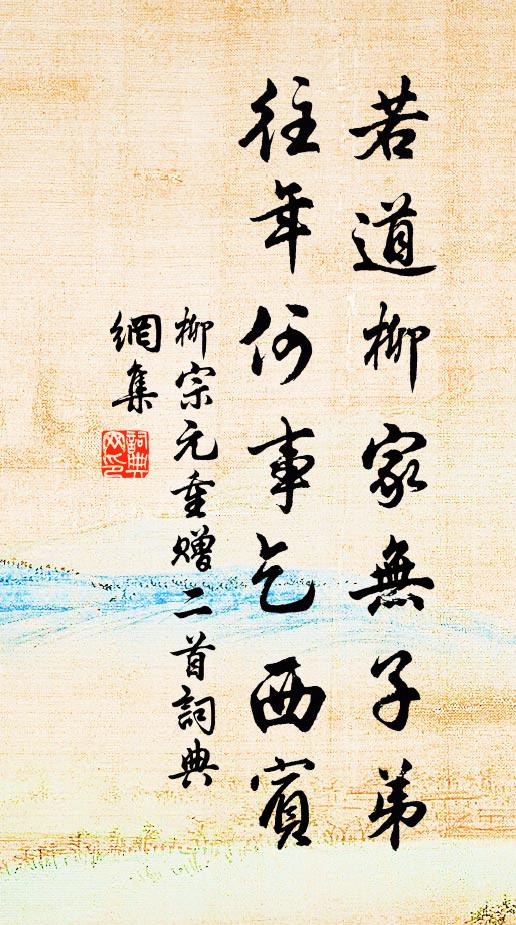 若道柳家無子弟
往年何事乞西賓
柳宗元重赠二首詞典
網集
詞典
网印